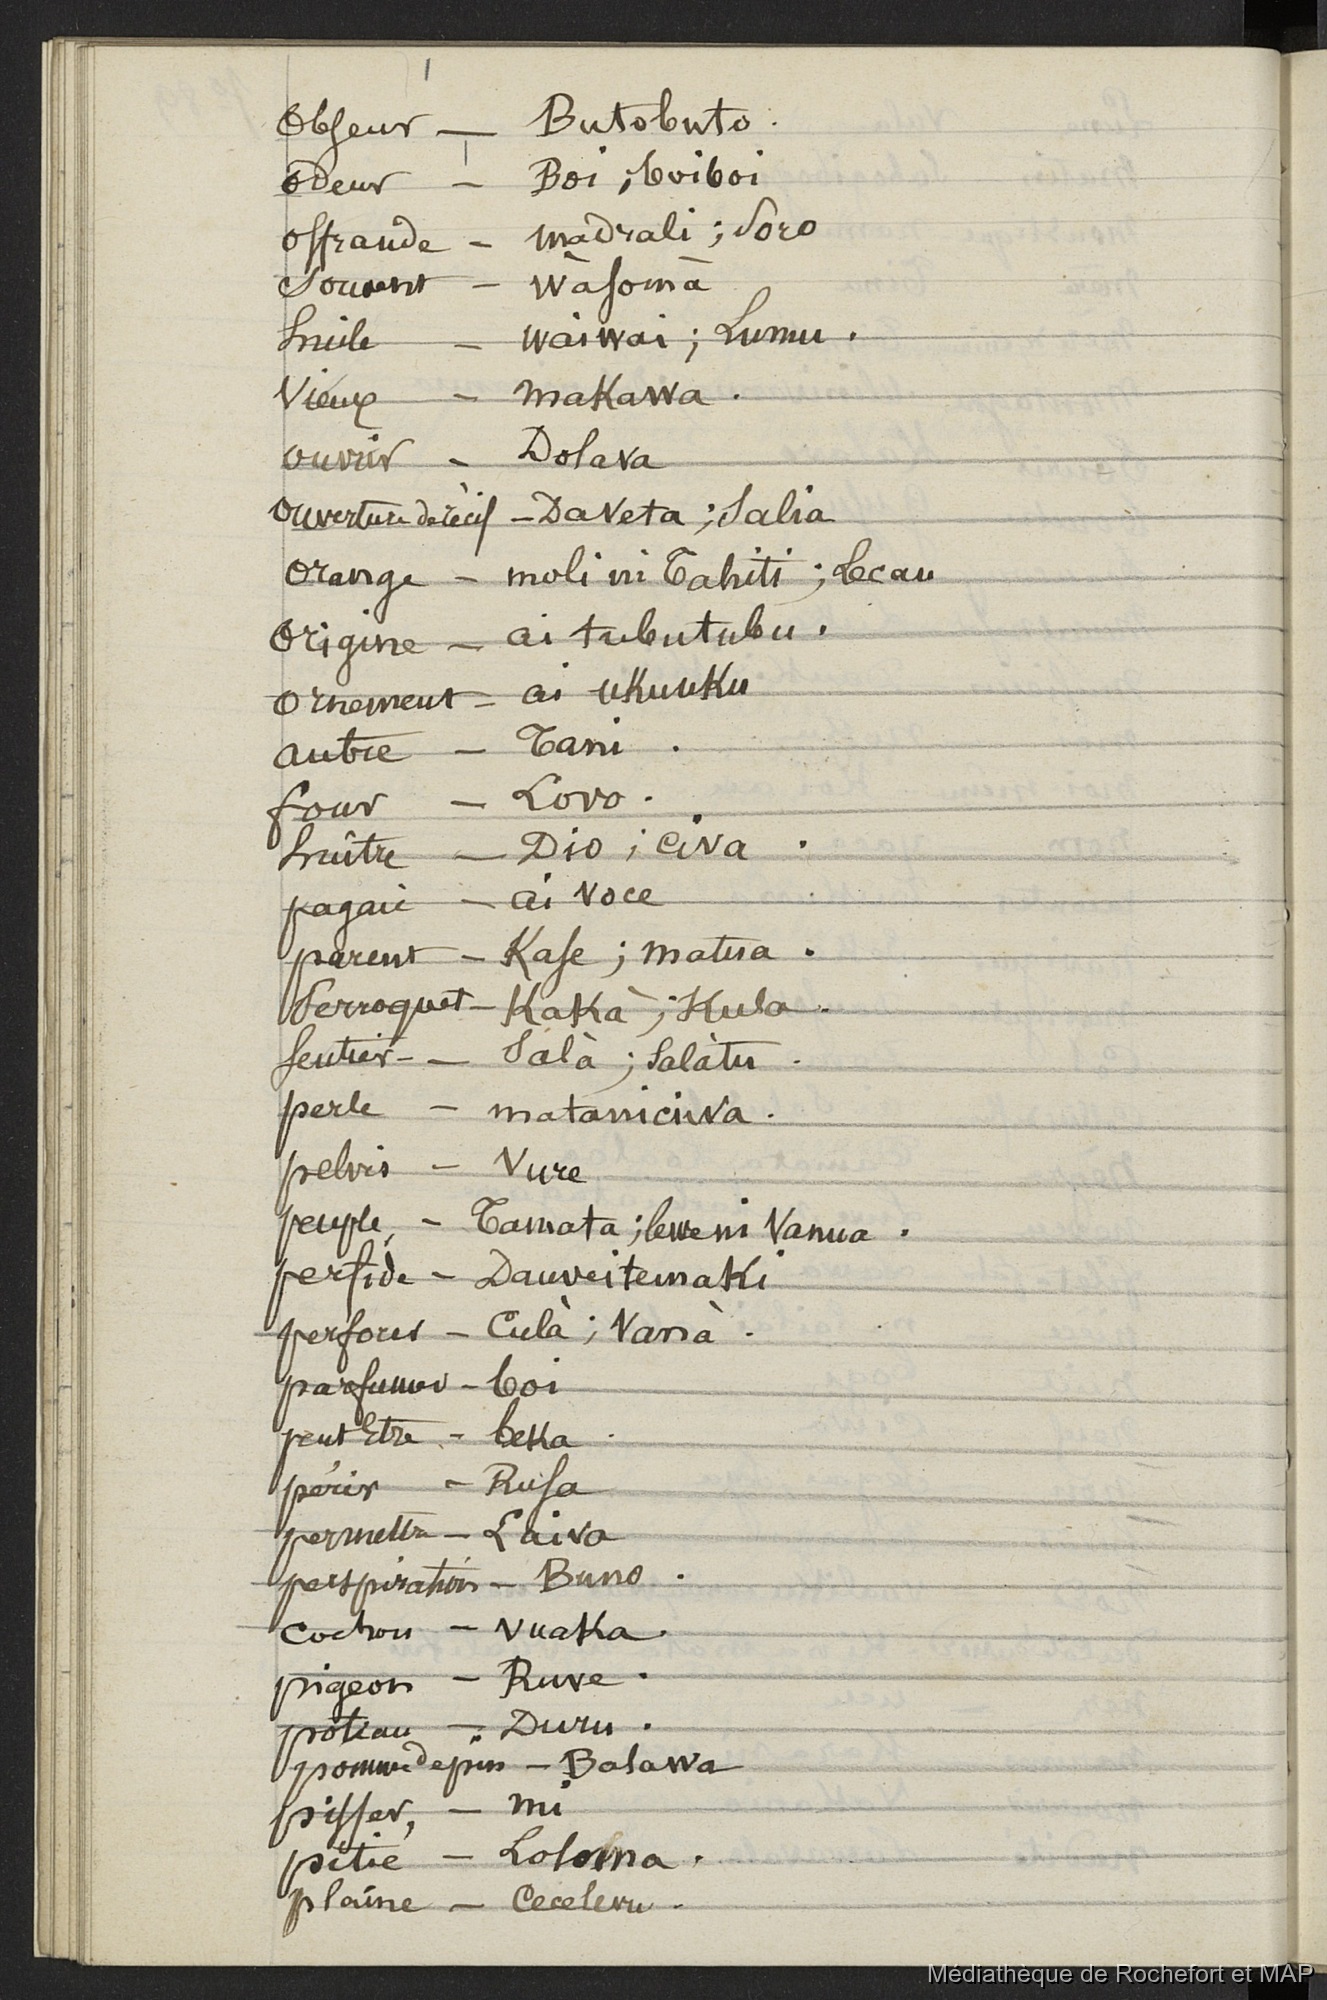 Obscur — Butobuto.
odeur — Boi ; boiboi
offrande — madrali ; Soro
Souvent — Wàsomà
huile — waiwai ; Lumu.
Vieux — makawa.
ouvrir — Dolava
ouverture de récif — Daveta ; Salia
orange — moli ni Tahiti ; Lecau
Origine — ai tubutubu.
ornement — ai ukuuku
autre — Tani.
four — Lovo.
huître — Dio ; civa.
pagaie — ai voce
parent — Kase ; matua.
Perroquet — Kakà ; Kula.
Sentier — Salà ; Salàtu.
perle — mataniciva.
pelvis — Vure
peuple, — Tamata ; lewe ni Vanua.
perfide — Dauveitemaki
perforer — Culà ; Vanà.
parfumer — boi
peut Etre — beka.
périr — Rusa
permettre — Laiva
perspiration — Buno.
Cochon — Vuaka.
pigeon — Ruve.
poteau — Duru.
pomme de pin — Balawa
pisser, — mi
pitié — Loloma.
plaine — Cecelevu.
Médiathèque de Rochefort et MAP